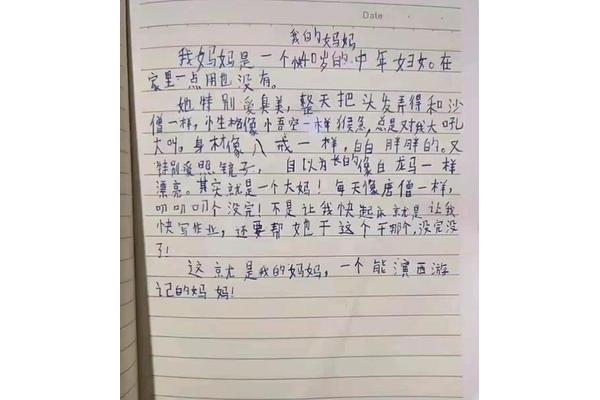 Date
我的妈妈
我妈妈是一个快40岁的中年妇女。在
家里一点用也没有。
她特别爱臭美，整天把头发弄得和沙
僧一样，性格像孙悟空一样猴急，总是对我大吼
大叫，身材像八戒一样，白白胖胖的。又
特别爱照镜子，自以为长的像白龙马一样
漂亮。其实就是一个大妈！每天像唐僧一样，
叨叨叨个没完！不是让我快起床就是让我
快写作业，还要帮她干这个干那个，没完没
了！
这就是我的妈妈，一个能演西游
记的妈妈！